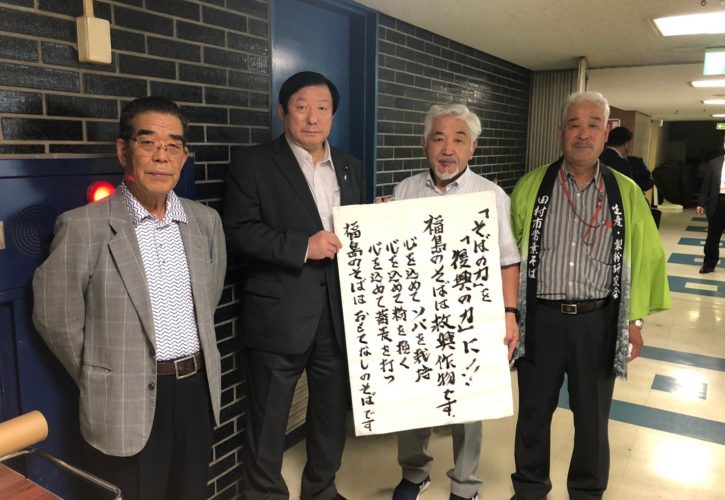 「そばの力」を
「復興の力」に!!
福島のそばは救興作物です。
心を込めてソバを栽培
心を込めて粉を挽く
心を込めて蕎麦を打つ
福島のそばは おもてなしのそばです
田村市常葉そば
生産・製粉研究会